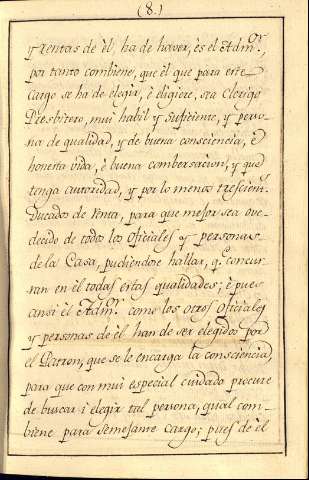 (8.)
y rentas de èl, ha de haver, ès el Adm.ºr
por tanto combiene, que èl que para este
Cargo se ha de elegir, è eligiere, sea Clerigo
Presbitero, mui habil y suficiente, y perso-
na de qualidad, y de buena consciencia, è
honesta vida, è buena combersacion, y que
tenga autoridad, y por lo menos trescien.s
Ducados de renta, para que mejor sea ove-
decido de todos los oficiales y personas
de la Casa, pudiendose hallar, q.e concur-
ran en èl todas estas qualidades; è pues
ansi èl Adm.ºr como los otros oficiales
y personas de èl han de ser elegidos por
el Patron, que se le encarga la consciencia,
para que con mui especial cuidado procure
de buscar i elegir tal persona, qual com-
biene para semejante cargo; pues de èl